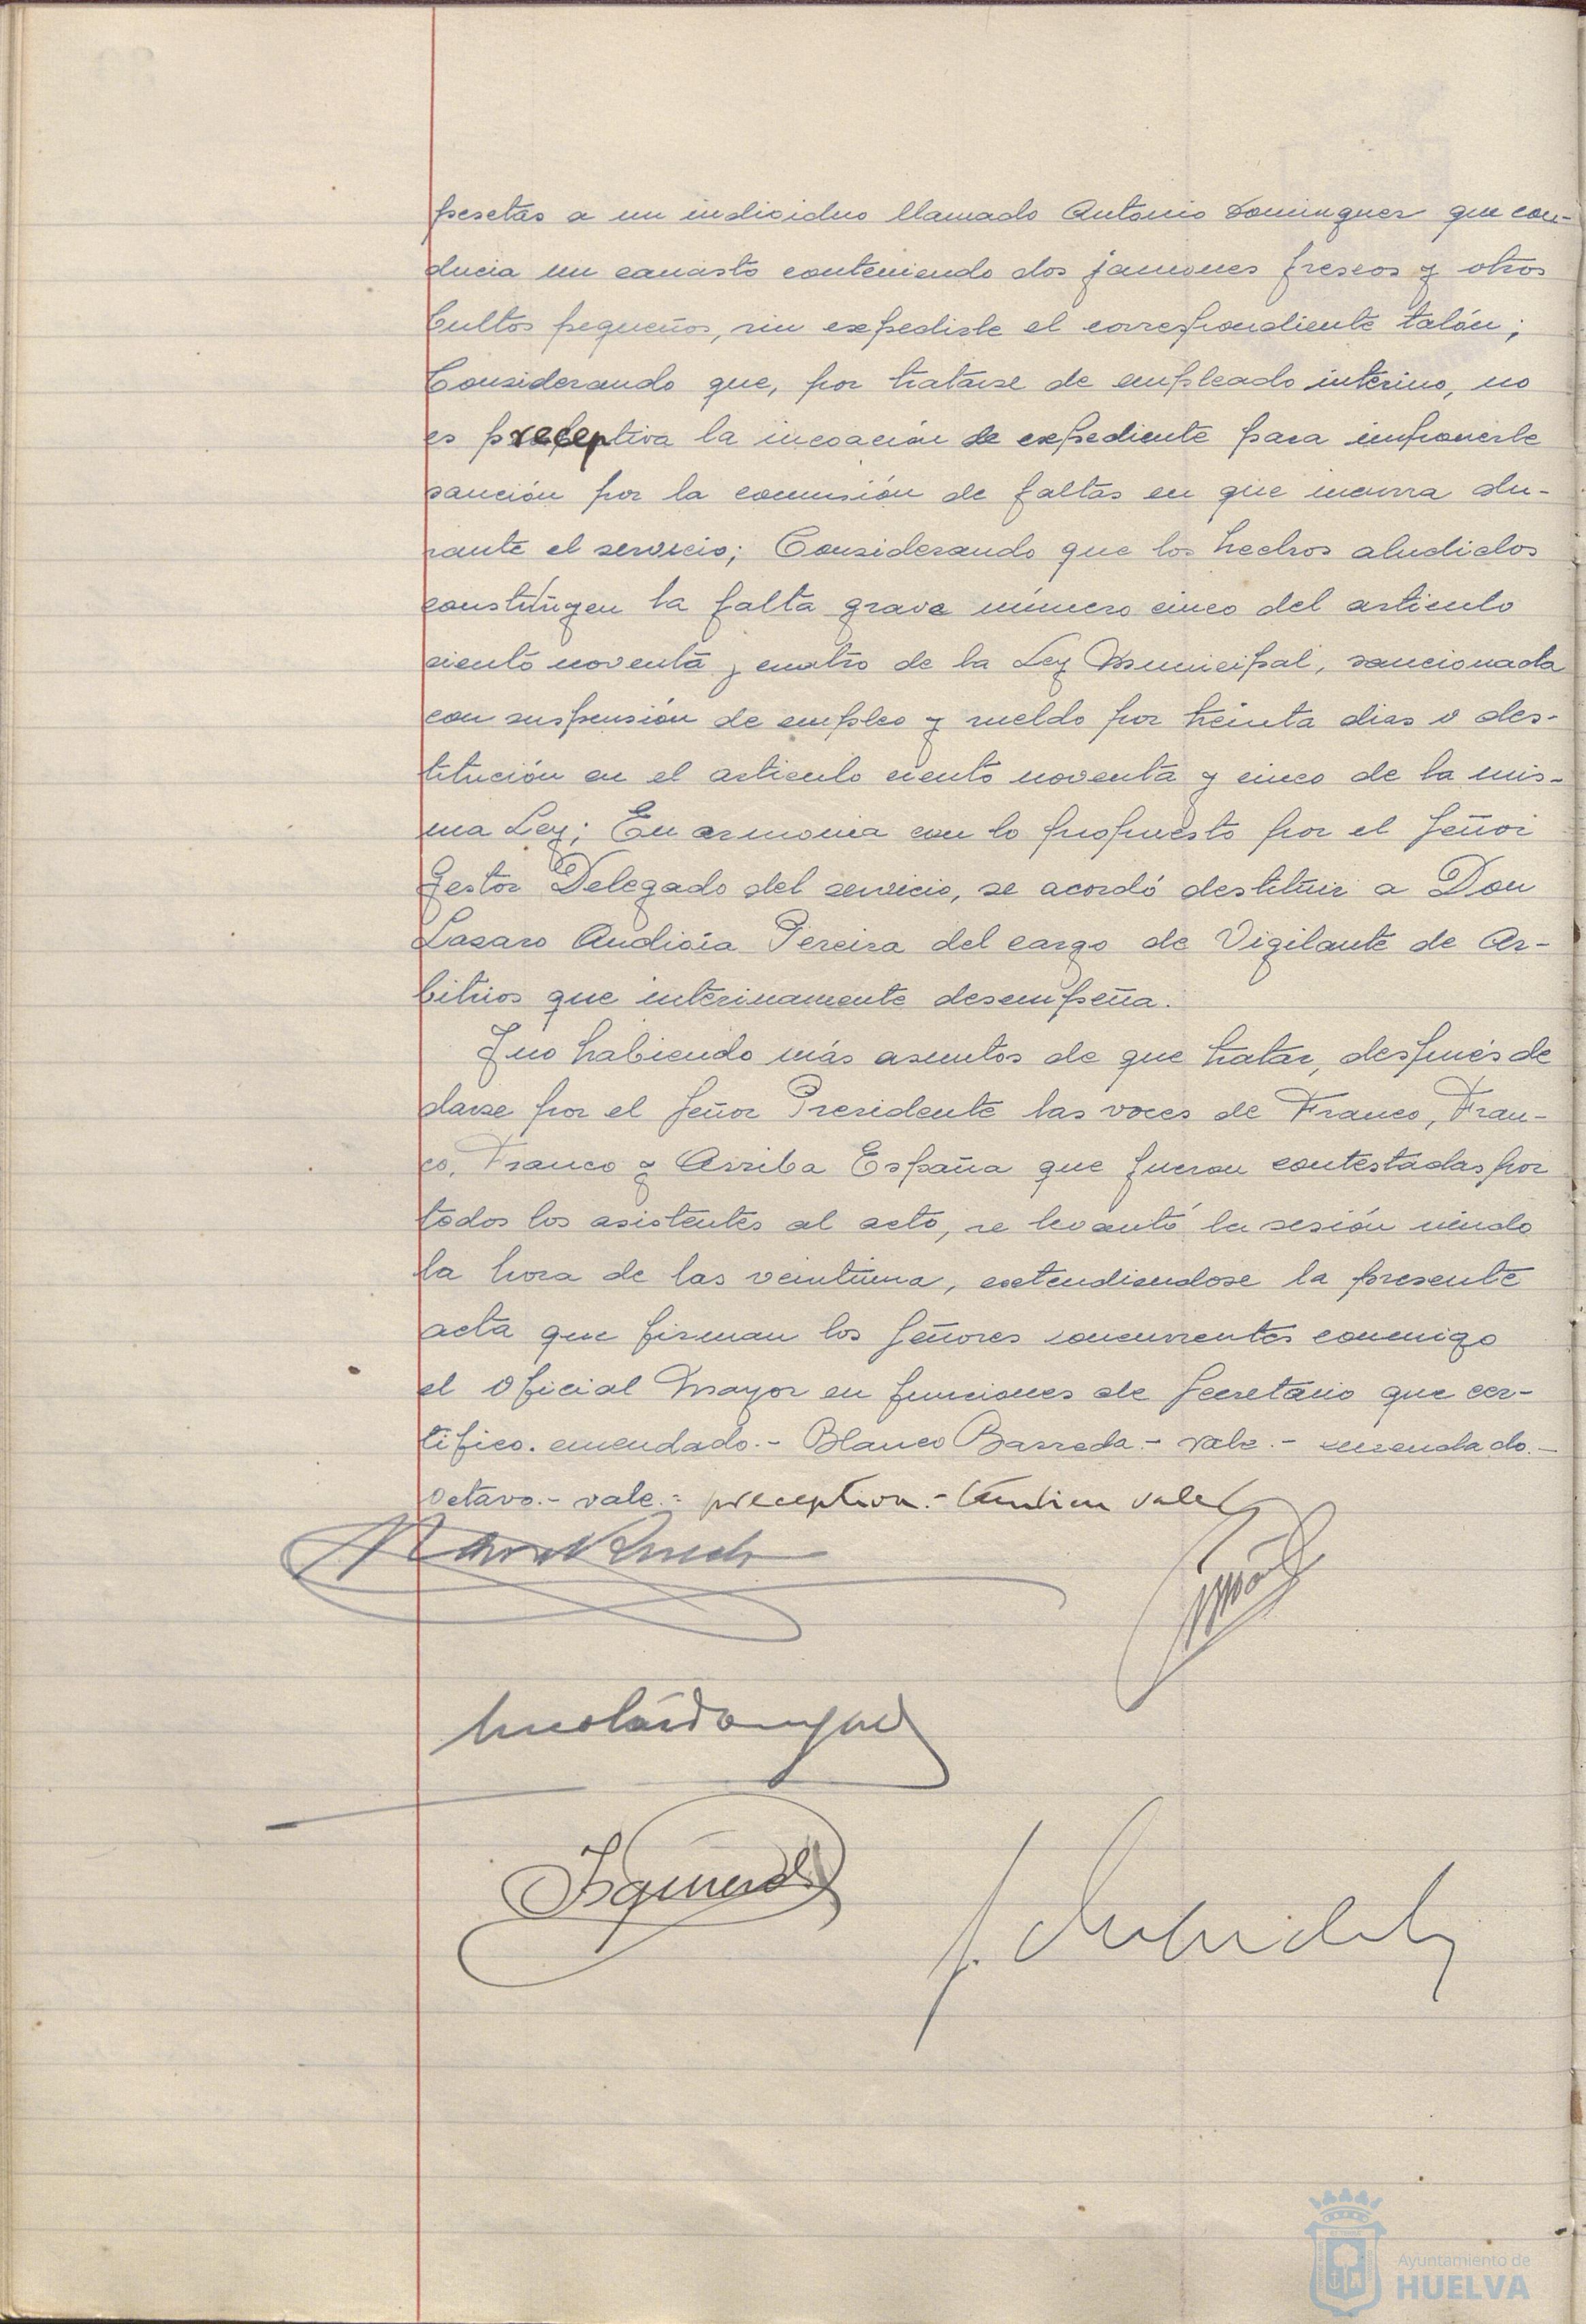 pesetas a un individuo llamado Antonio Dominguez que con-
ducia un canasto conteniendo dos jamones frescos y otros
bultos pequeños, sin expedirle el correspondiente talón;
Considerando que, por tratarse de empleado interino, no
es preceptiva la incoación de expediente para imponerle
sanción por la comisión de faltas en que incurra du-
rante el servicio; Considerando que los hechos aludidos
constituyen la falta grave número cinco del articulo
ciento noventa y cuatro de la Ley Municipal, sancionada
con suspensión de empleo y sueldo por treinta dias o des-
titución en el articulo ciento noventa y cinco de la mis-
ma Ley; En armonia con lo propuesto por el Señor
Gestor Delegado del servicio, se acordó destituir a Don
Lazaro Andivia Pereira del cargo de Vigilante de Ar-
bitrios que interinamente desempeña.
Y no habiendo más asuntos de que tratar, después de
darse por el Señor Presidente las voces de Franco, Fran-
co, Franco y Arriba España que fueron contestadas por
todos los asistentes al acto, se levantó la sesión siendo
la hora de las veintiuna, extendiendose la presente
acta que firman los Señores concurrentes conmigo
el Oficial Mayor en funciones de Secretario que cer-
tifico. emendado.- Blanco Barreda.- vale.- enmendado.-
octavo.- vale.- preceptiva.- tambien vale
Izquierdo
Ayuntamiento de
HUELVA